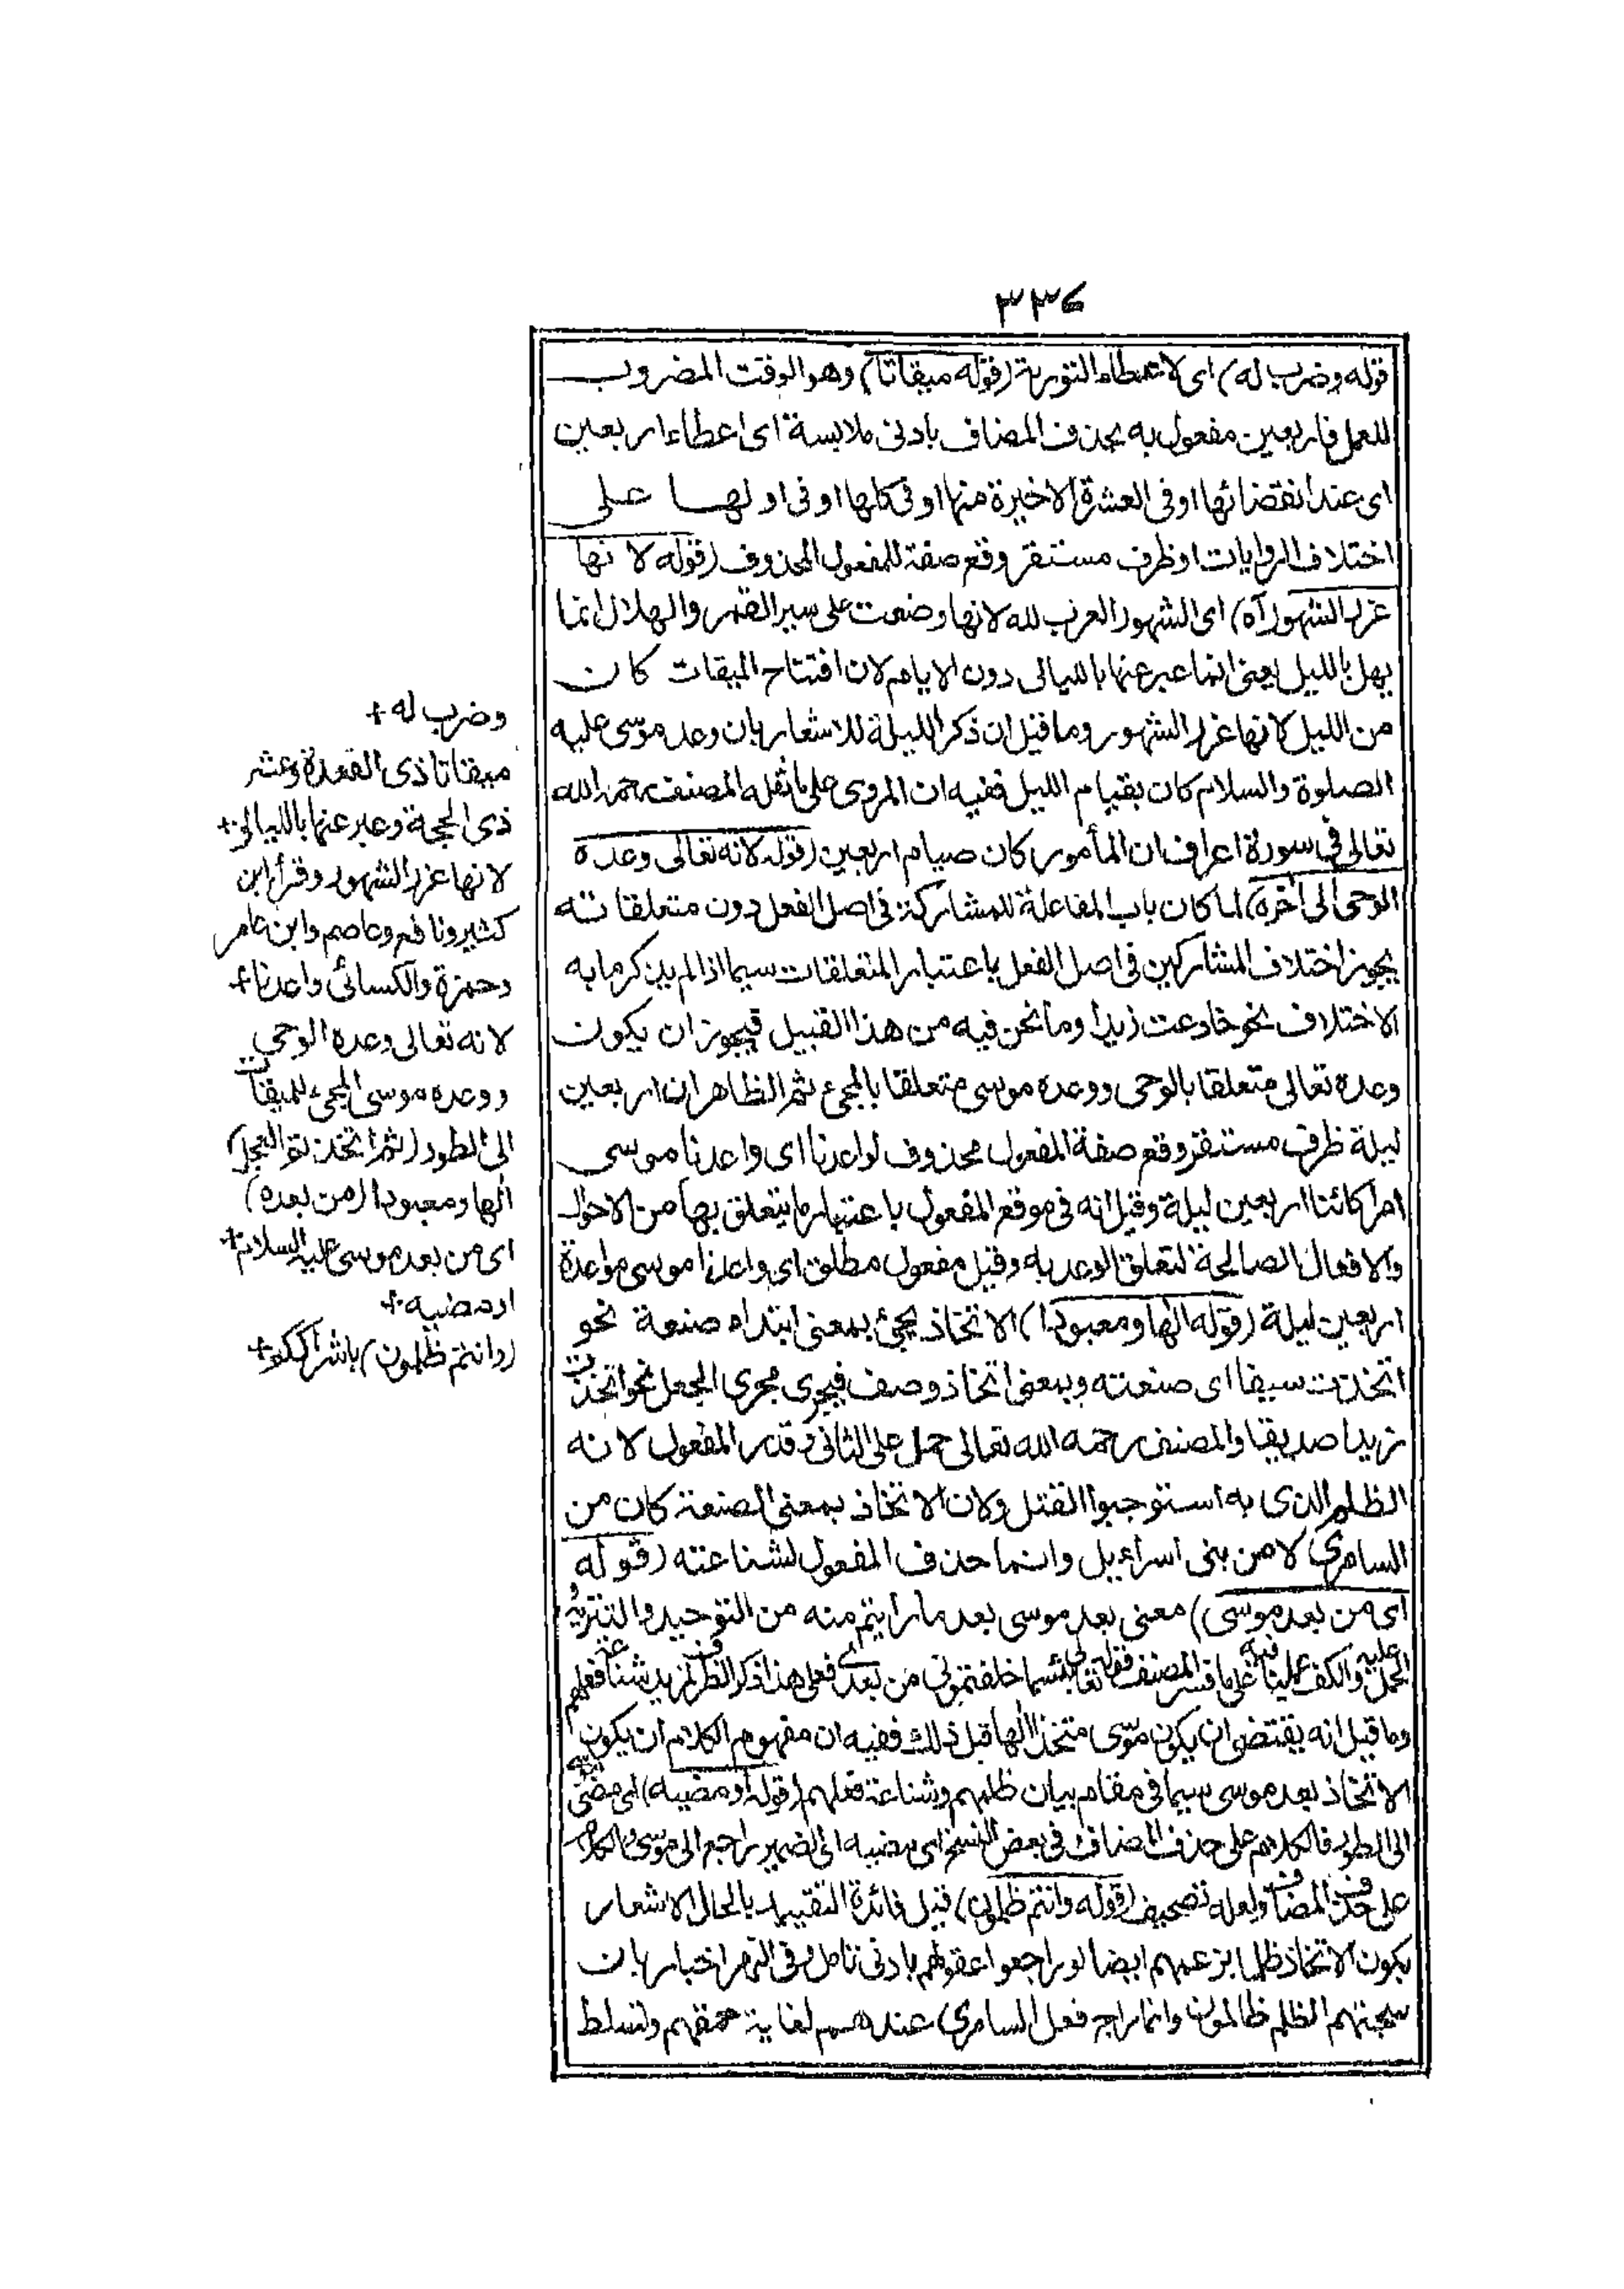 ٣٣٦
قوله وضرب له) اى لاعطاء التورية (قوله ميقاتا) وهو الوقت المضروب
للعمل فاربعين مفعول به بحذف المضاف بادنى ملابسة اى اعطاء اربعين
اى عند انقضائها او فى العشرة الاخيرة منها او فى كلها او فى اولها على
اختلاف الروايات او ظرف مستقر وقع صفة للمفعول المحذوف (قوله لانها
غرر الشهور آه) اى الشهور العربية لانها وضعت على سير القمر والهلال انما
يهل بالليل يعنى انما عبر عنها بالليالى دون الايام لان افتتاح الميقات كان
من الليل لانها غرر الشهور وما قيل ان ذكر الليلة للاشعار بان وعد موسى عليه
الصلوة والسلام كان بقيام الليل ففيه ان المروى على ما نقله المصنف رحمه الله
تعالى فى سورة اعراف ان المأمور كان صيام اربعين (قوله لانه تعالى وعده
الوحى الى آخره) لما كان باب المفاعلة للمشاركة فى اصل الفعل دون متعلقاته
يجوز اختلاف المشاركين فى اصل الفعل باعتبار المتعلقات سيما اذا لم يذكر ما به
الاختلاف نحو خادعت زيدا وما نحن فيه من هذا القبيل فيجوز ان يكون
وعده تعالى متعلقا بالوحى ووعده موسى متعلقا بالمجئ ثم الظاهر ان اربعين
ليلة ظرف مستقر وقع صفة المفعول محذوف لواعدنا اى واعدنا موسى
امرا كائنا اربعين ليلة وقيل انه فى موقع المفعول باعتبار ما يتعلق بها من الاحوال
والافعال الصالحة لتعلق الوعد به وقيل مفعول مطلق اى واعدنا موسى مواعدة
اربعين ليلة (قوله الها ومعبودا) الاتخاذ يجئ بمعنى ابتداء صنعة نحو
اتخذت سيفا اى صنعته وبمعنى اتخاذ وصف فيجرى مجرى الجعل نحو اتخذت
زيدا صديقا والمصنف رحمه الله تعالى حمل على الثانى وقدر المفعول لانه
الظلم الذى به استوجبوا القتل ولان الاتخاذ بمعنى الصنعة كان من
السامرى لا من بنى اسراءيل وانما حذف المفعول لشناعته (قوله
اى من بعد موسى) معنى بعد موسى بعد ما رايتم منه من التوحيد والتنزيه
الحمل عليه والكف على ما فسر المصنف قوله تعالى بئسما خلفتمونى من بعدى فعلى هذا ذكر الظرف لمزيد شناعة فعلهم
وما قيل انه يقتضى ان يكون موسى متخذا الها قبل ذلك ففيه ان مفهوم الكلام ان يكون
الاتخاذ بعد موسى سيما فى مقام بيان ظلمهم وشناعة فعلهم (قوله او مضيه) اى مضى
الى الطور فالكلام على حذف المضاف فى بعض النسخ اى مضيه الى الضمير راجع الى موسى والكلام
على حذف المضاف ولعله تصحيف (قوله وانتم ظلمون) قيل فائدة التقييد بالحال الاشعار
بكون الاتخاذ ظلما بزعمهم ايضا لو راجعوا عقولهم بادنى تامل وفى اخبار بان
سجيتهم الظلم ظالمون وانما راج فعل السامرى عندهم لغاية حمقهم وتسلط
وضرب له +
ميقاتا ذى القعدة وعشر
ذى الحجة وعبر عنها بالليالى +
لانها غرر الشهور وقرأ ابن
كثير ونافع وعاصم وابن عامر
وحمزة والكسائى واعدنا +
لانه تعالى وعده الوحى
ووعده موسى المجئ للميقات
الى الطور (ثم اتخذتم العجل)
الها ومعبودا (من بعده)
اى من بعد موسى عليه السلام +
او مضيه +
(وانتم ظلمون) باشراككم +